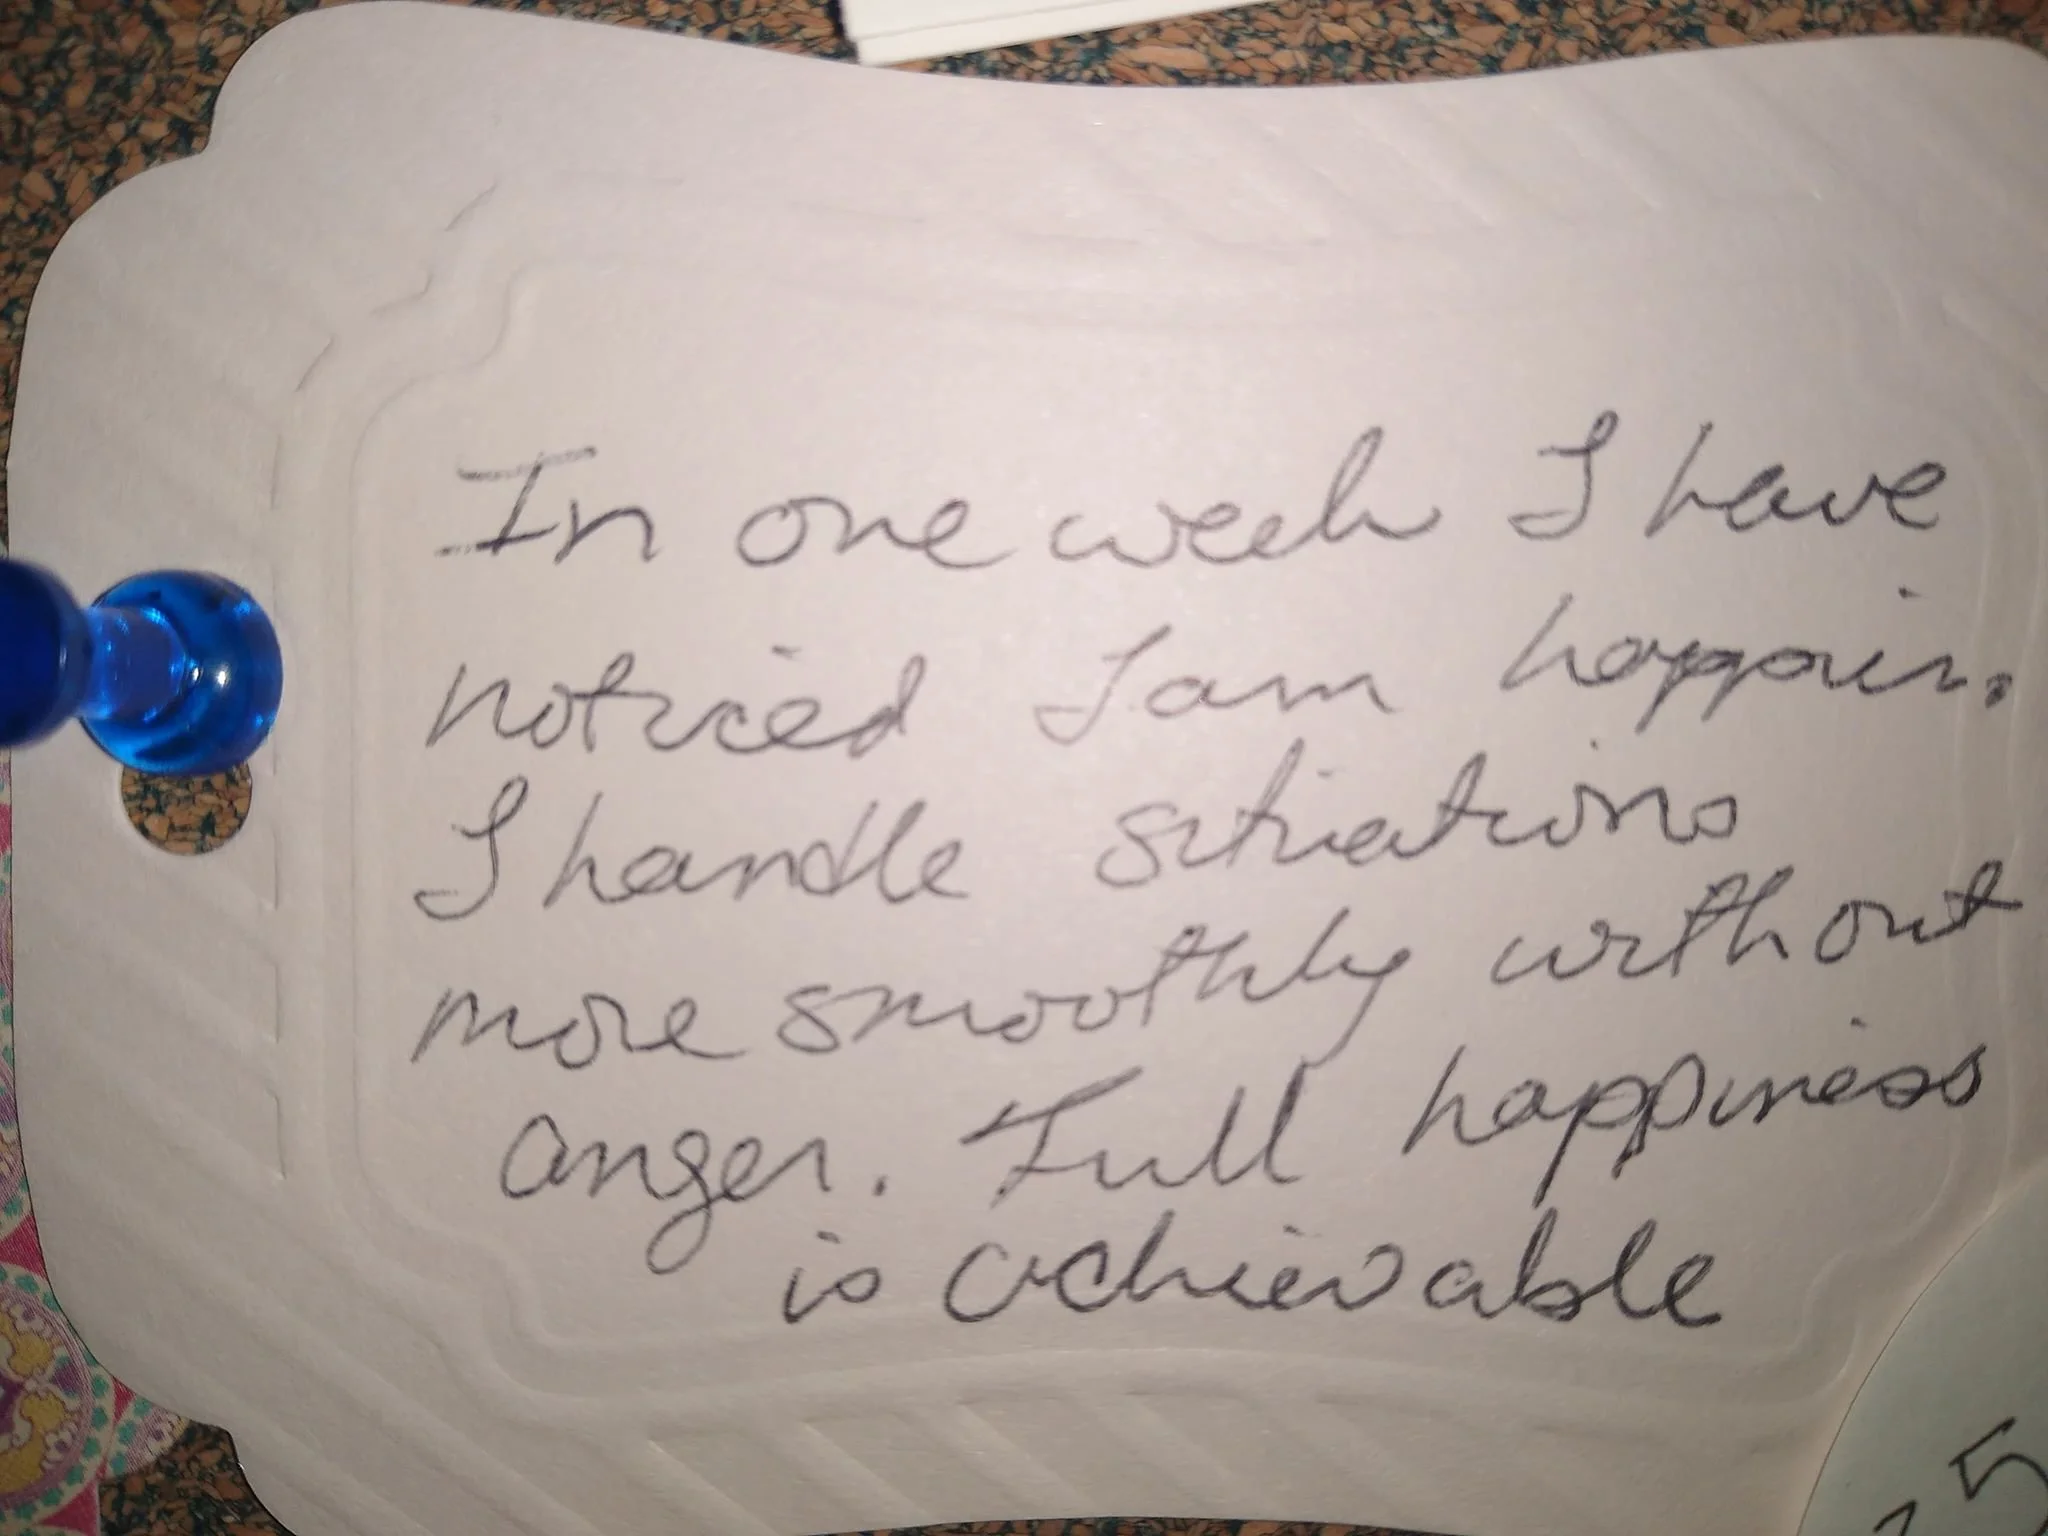 In one week I have
noticed I am happier.
I handle situations
more smoothly without
anger. Full happiness
is achievable
75